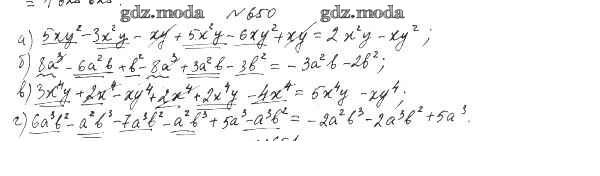 gdz.moda №650 gdz.moda
а) 5xy² - 3x²y - xy + 5x²y - 6xy² + xy = 2x²y - xy²;
б) 8a³ - 6a²b + b² - 8a³ + 3a²b - 3b² = - 3a²b - 2b²;
в) 3x⁴y + 2x⁴ - xy⁴ + 2x⁴ + 2x⁴y - 4x⁴ = 5x⁴y - xy⁴;
г) 6a³b² - a²b³ - 7a³b² - a²b³ + 5a³ - a³b² = - 2a²b³ - 2a³b² + 5a³.